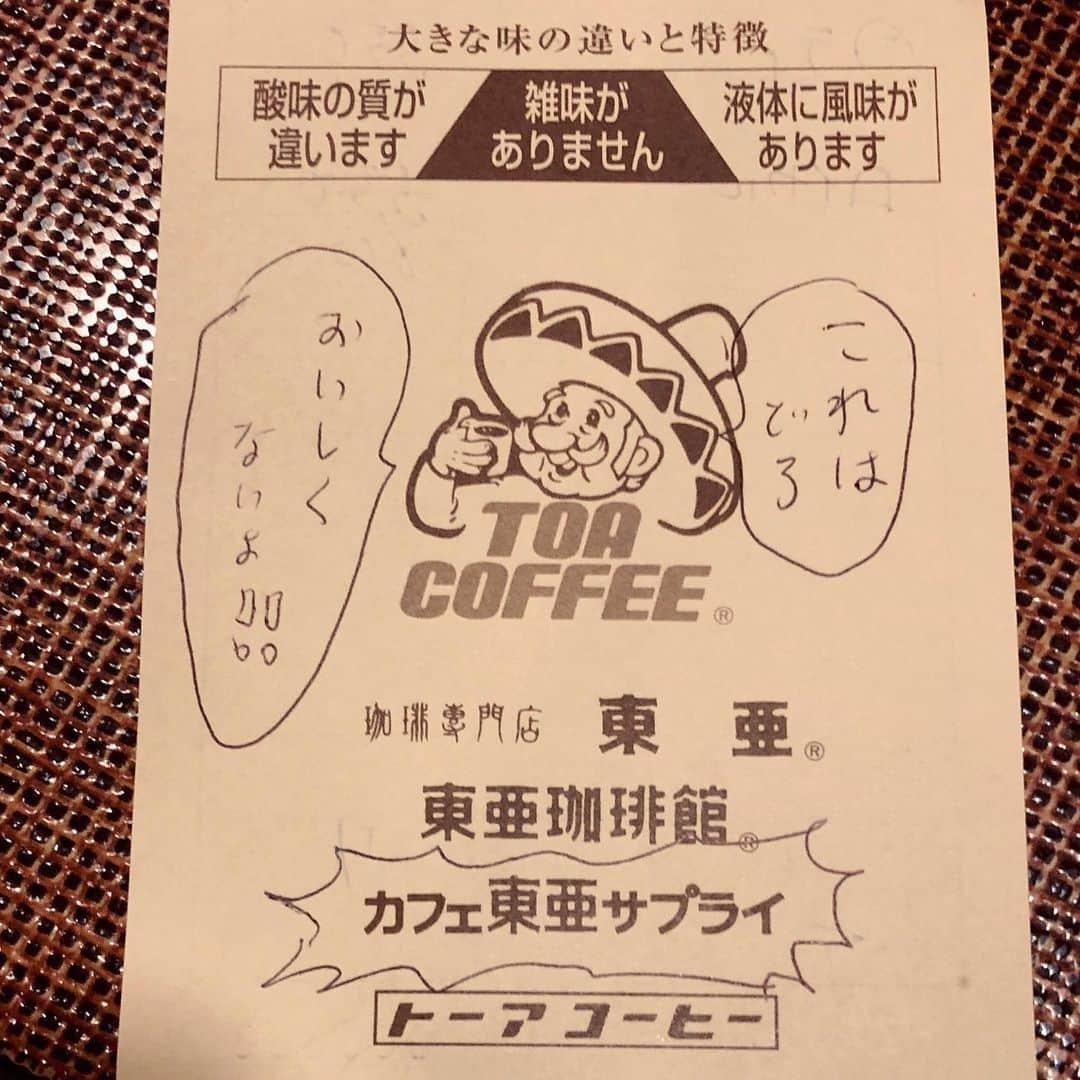 大きな味の違いと特徴
酸味の質が
違います
雑味が
ありません
液体に風味が
あります
これは
どろ
おいしく
ないよ!!
TOA
COFFEE®
珈琲専門店 東亜®
東亜珈琲館®
カフェ東亜サプライ
トーアコーヒー